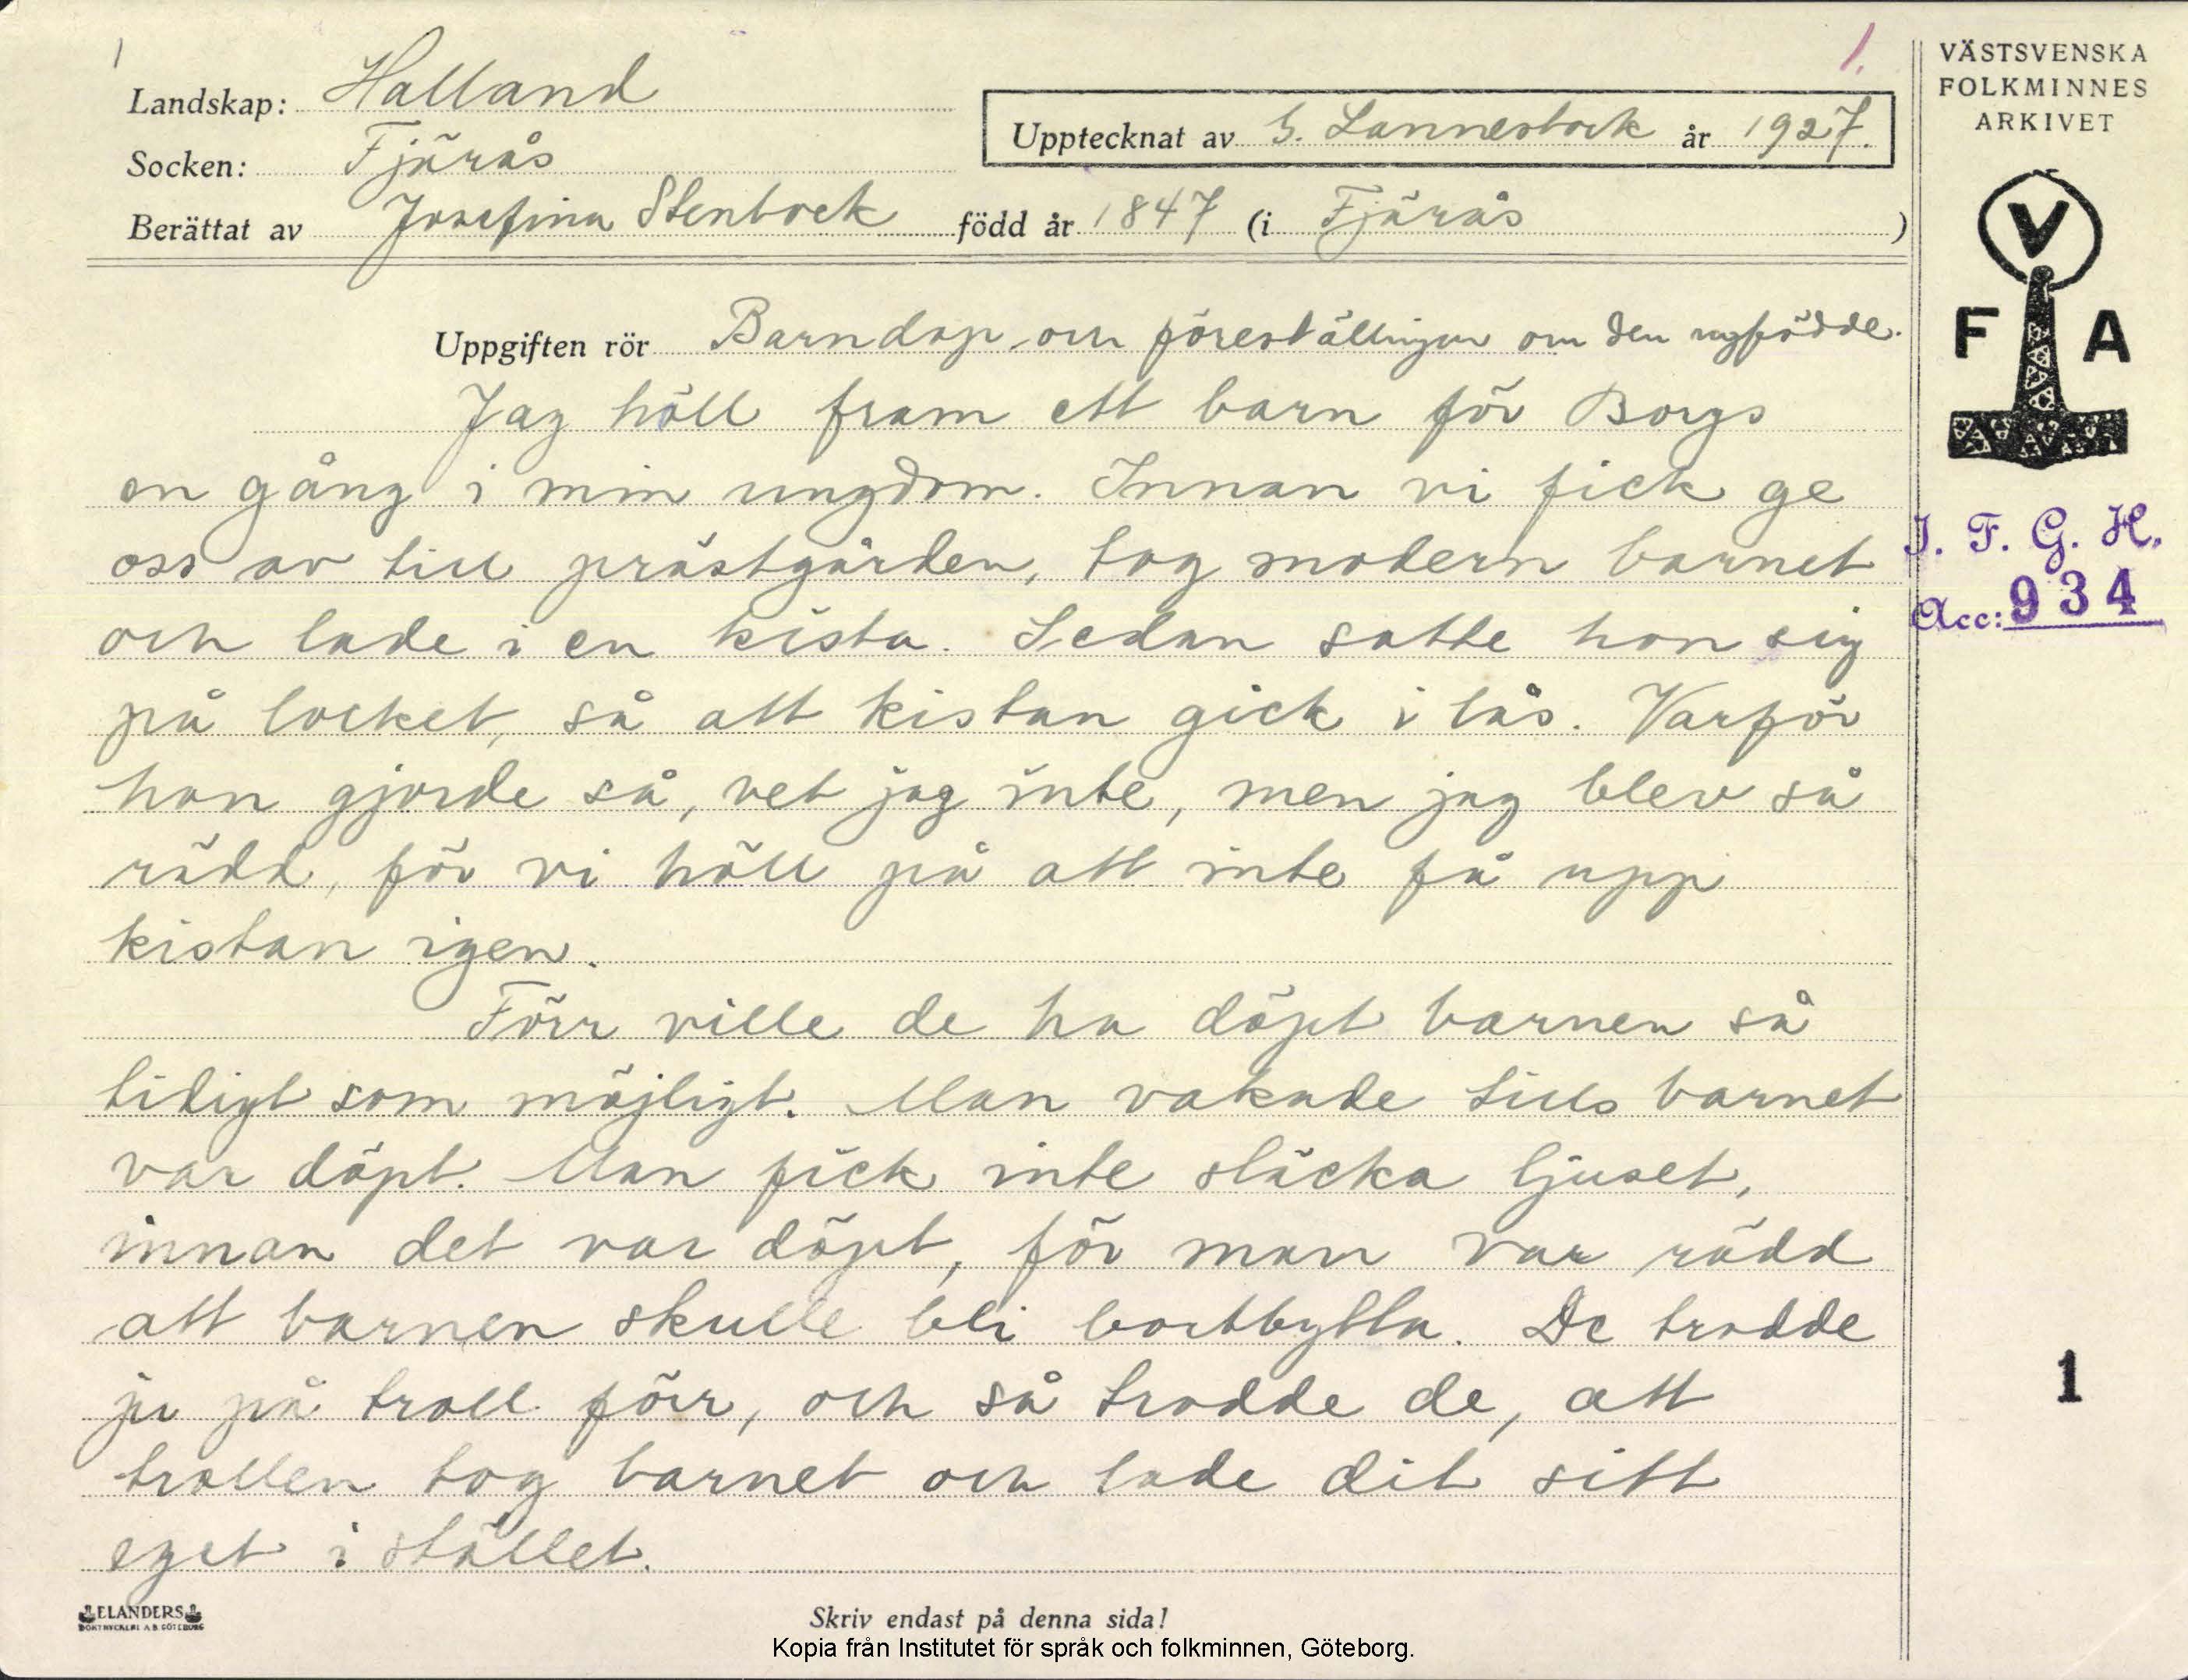 1
1.
Landskap: Halland
Socken: Fjärås
Upptecknat av G. Lannestock år 1927.
Berättat av Josefina Stenbock född år 1847 (i Fjärås )
VÄSTSVENSKA
FOLKMINNES
ARKIVET
V
F A
I. F. G. H.
Acc: 934
Uppgiften rör Barndop och föreställningar om den nyfödde.
Jag höll fram ett barn för Borgs
en gång i min ungdom. Innan vi fick ge
oss av till prästgården, tog modern barnet
och lade i en kista. Sedan satte hon sig
på locket, så att kistan gick i lås. Varför
hon gjorde så, vet jag inte, men jag blev så
rädd, för vi höll på att inte få upp
kistan igen.
Förr ville de ha döpt barnen så
tidigt som möjligt. Man vakade tills barnet
var döpt. Man fick inte släcka ljuset,
innan det var döpt, för man var rädd
att barnen skulle bli bortbytta. De trodde
ju på troll förr, och så trodde de, att
trollen tog barnet och lade dit sitt
eget i stället.
1
ELANDERS
BOKTRYCKERI A.B. GÖTEBORG
Skriv endast på denna sida!
Kopia från Institutet för språk och folkminnen, Göteborg.